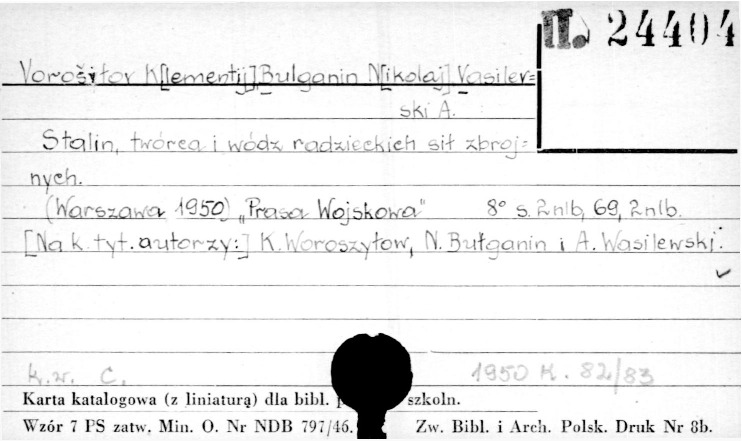 II. 24404
Vorošiłov K[lementij], Bulganin N[ikolaj], Vasilev=
ski A.
Stalin, twórca i wódz radzieckich sił zbroj=
nych.
(Warszawa 1950) „Prasa Wojskowa" 8° s. 2 nlb, 69, 2 nlb.
[Na k. tyt. autorzy:] K. Woroszyłow, N. Bułganin i A. Wasilewski.
k.w. C. 1950 K. 82/83
Karta katalogowa (z liniaturą) dla bibl. szkoln.
Wzór 7 PS zatw. Min. O. Nr NDB 797/46. Zw. Bibl. i Arch. Polsk. Druk Nr 8b.